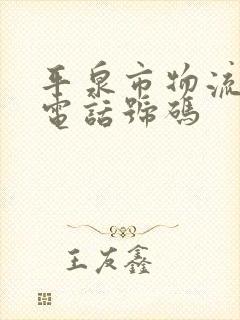 平泉市物流
電話號碼
王友鑫